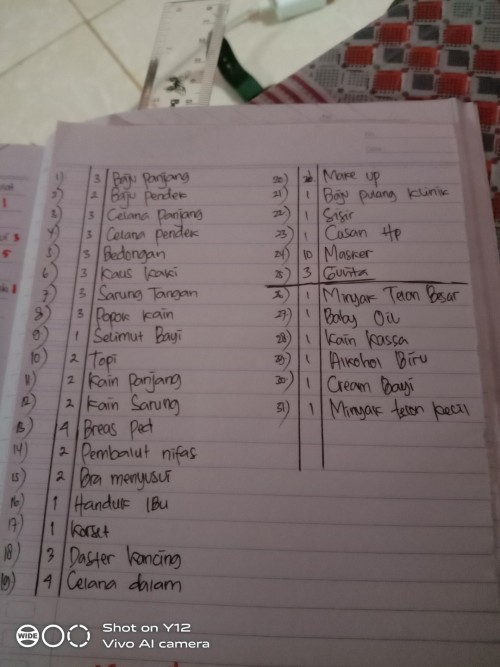 1) 3 Baju panjang
2) 2 Baju pendek
3) 3 Celana panjang
4) 3 Celana pendek
5) 3 Bedongan
6) 3 Kaus kaki
7) 3 Sarung Tangan
8) 3 Popok kain
9) 1 Selimut Bayi
10) 2 Topi
11) 2 Kain panjang
12) 2 Kain Sarung
13) 4 Breas Ped
14) 2 Pembalut nifas
15) 2 Bra menyusui
16) 1 Handuk IBu
17) 1 Korset
18) 3 Daster kancing
19) 4 Celana dalam
20) Make up
21) 1 Baju pulang klinik
22) 1 Sisir
23) 1 Casan Hp
24) 10 Masker
25) 3 Gurita
26) 1 Minyak Telon Besar
27) 1 Baby Oil
28) 1 Kain Kassa
29) 1 Alkohol Biru
30) 1 Cream Bayi
31) 1 Minyak telon kecil
WIDE
Shot on Y12
Vivo AI camera